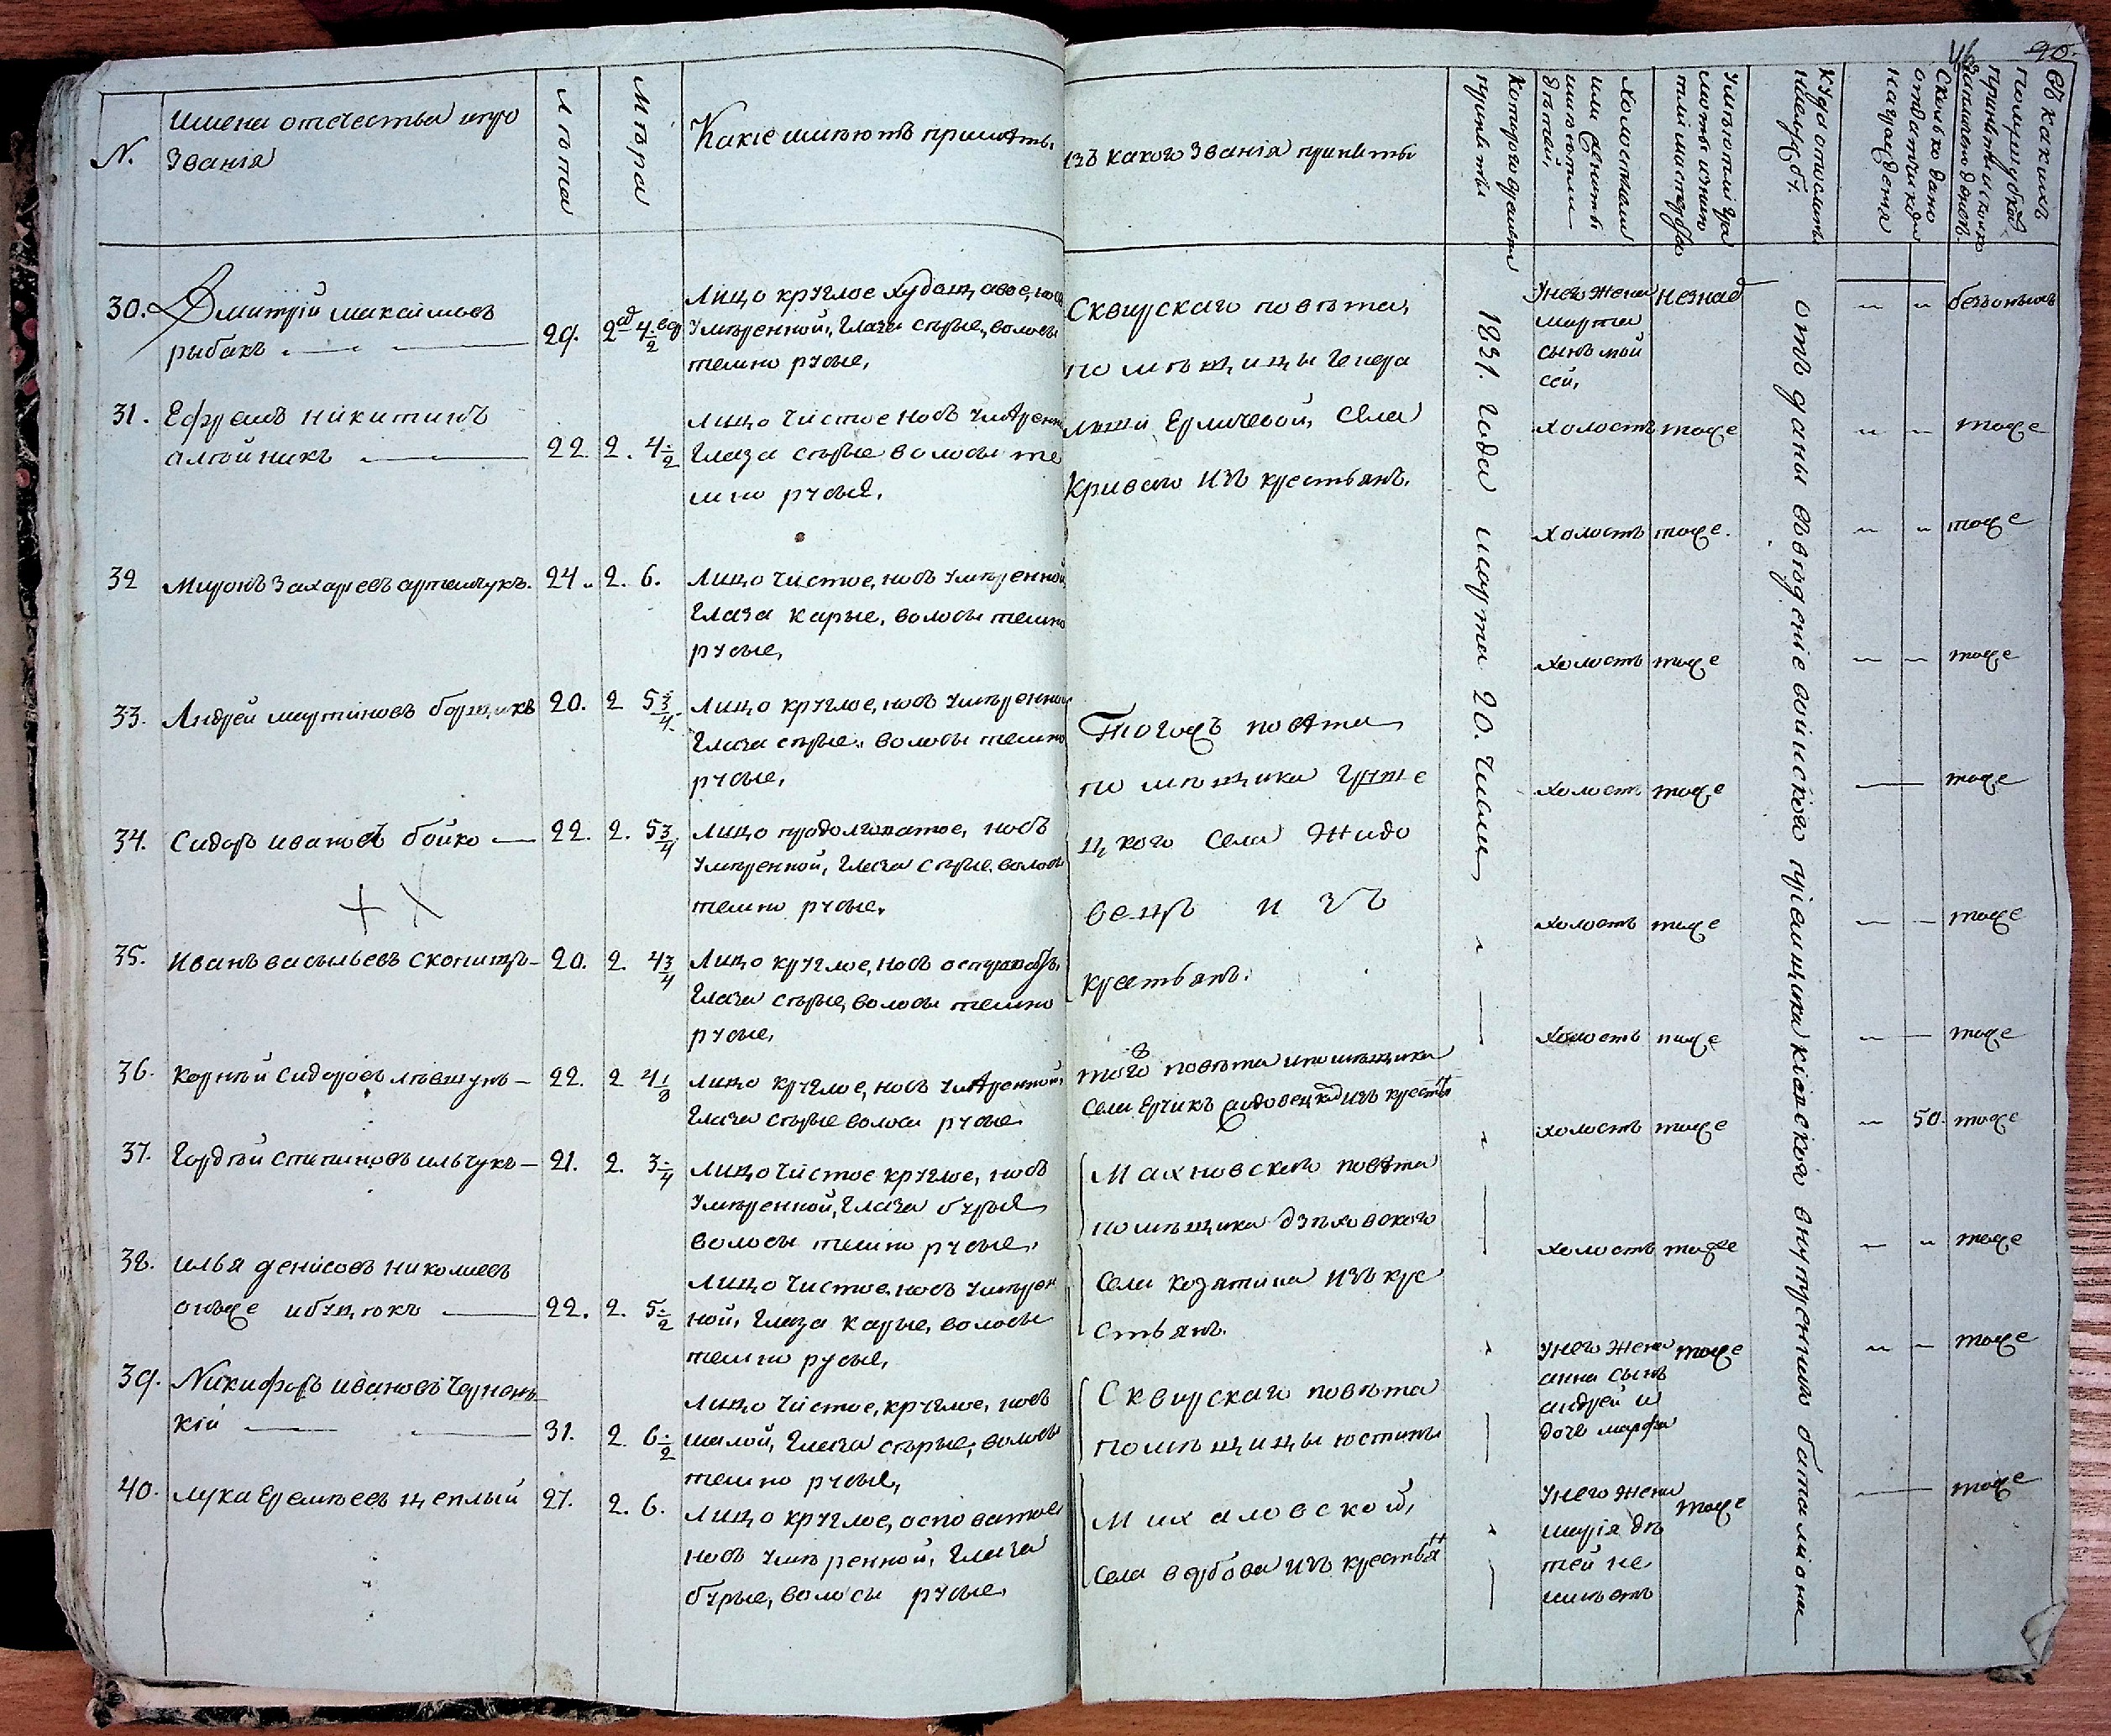 40.
N.
Имена отечества и про
званія
Лѣта
Мѣра
Какіе имѣютъ приметы.
изъ какого званія приняты
Которого времени
приняты
Холостыи
или женаты
имѣютъ ли
дѣтей.
Куда отосланы
Сколько дано
отдатчикам
награжденія
Въ какихъ
30. Дмитрій максимовъ
рыбакъ
29.
2 4 1/2
Лицо круглое худощавое, носъ
умѣренной, глаза сѣрые, волосы
темно русые,
31. Ефремъ никитинъ
олѣйникъ
22. 2. 4 1/2
Лицо чистое носъ умѣренн
глаза сѣрые волосы те
мно русые.
32 Миронъ Захарьевъ артемчукъ. 24. 2. 6.
Лицо чистое, носъ умѣренной
глаза карые, волосы темно
русые,
33. Андрей мартиновъ борщикъ 20. 2 5 3/4.
Лицо круглое, носъ умѣренной
глаза сѣрые. волосы темно
русые,
34. Сидоръ ивановъ бойко — 22. 2. 5 3/4
Лицо продолговатое, носъ
умѣренной, глаза сѣрые, волосы
темно русые.
35. Иванъ васильевъ скопицъ — 20. 2. 4 3/4
Лицо круглое, носъ
глаза сѣрые, волосы темно
русые,
36. Корнѣй сидоровъ лѣвшунъ — 22. 2 4 1/8
лицо круглое, носъ умѣренной,
глаза сѣрые волоси русые
37. Гордѣй степановъ ильчукъ — 21. 2. 3/4
Лицо чистое круглое, носъ
умѣренной, глаза бурые
волосы темно русые.
38. илья денисовъ николаевъ
онъже ибуцюкъ — 22. 2. 5 1/2
Лицо чистое, носъ умѣрен
ной, глаза карые, волосы
темно русые,
39. Никифоръ ивановъ чернень
кій — 31. 2 6 1/2
Лицо чистое, круглое, носъ
малой, глаза сѣрые, волосы
темно русые,
40. лука Еремѣевъ щеплый 27. 2. 6.
Лицо круглое, осповатое
носъ умѣренной, глаза
бурые, волосы русые.
Сквирскаго повѣта,
помѣщицы генера
льши Ерличевой, села
Криваго изъ крестьянъ.
Тогожъ повѣта
помѣщика
цкого села Жидо
вецъ изъ
крестьянъ.
того повѣта и помѣщика
села Ерчикъ жидовецкой изъ крестья
Махновскаго повѣта
помѣщика дзѣховского
села козятина изъ кре
стьянъ.
Сквирскаго повѣта
помѣщицы юстины
Михаловской,
села вербова изъ крестьян
1831. года марта 20. числа
У него жена
марта
сынъ мой
сей,
незнад
безъоныхъ
холостъ тоже тоже
холостъ тоже. тоже
холостъ тоже тоже
холостъ тоже тоже
холостъ тоже тоже
холостъ тоже тоже
холостъ тоже 50. тоже
холостъ тоже тоже
У него жена
анна сынъ
андрей и
дочь марфа
тоже тоже
У него жена
марія дѣ
тей не
имѣетъ
тоже тоже
отъ даны въ вѣденіе воинского пріемщика кіевского внутренного баталіона